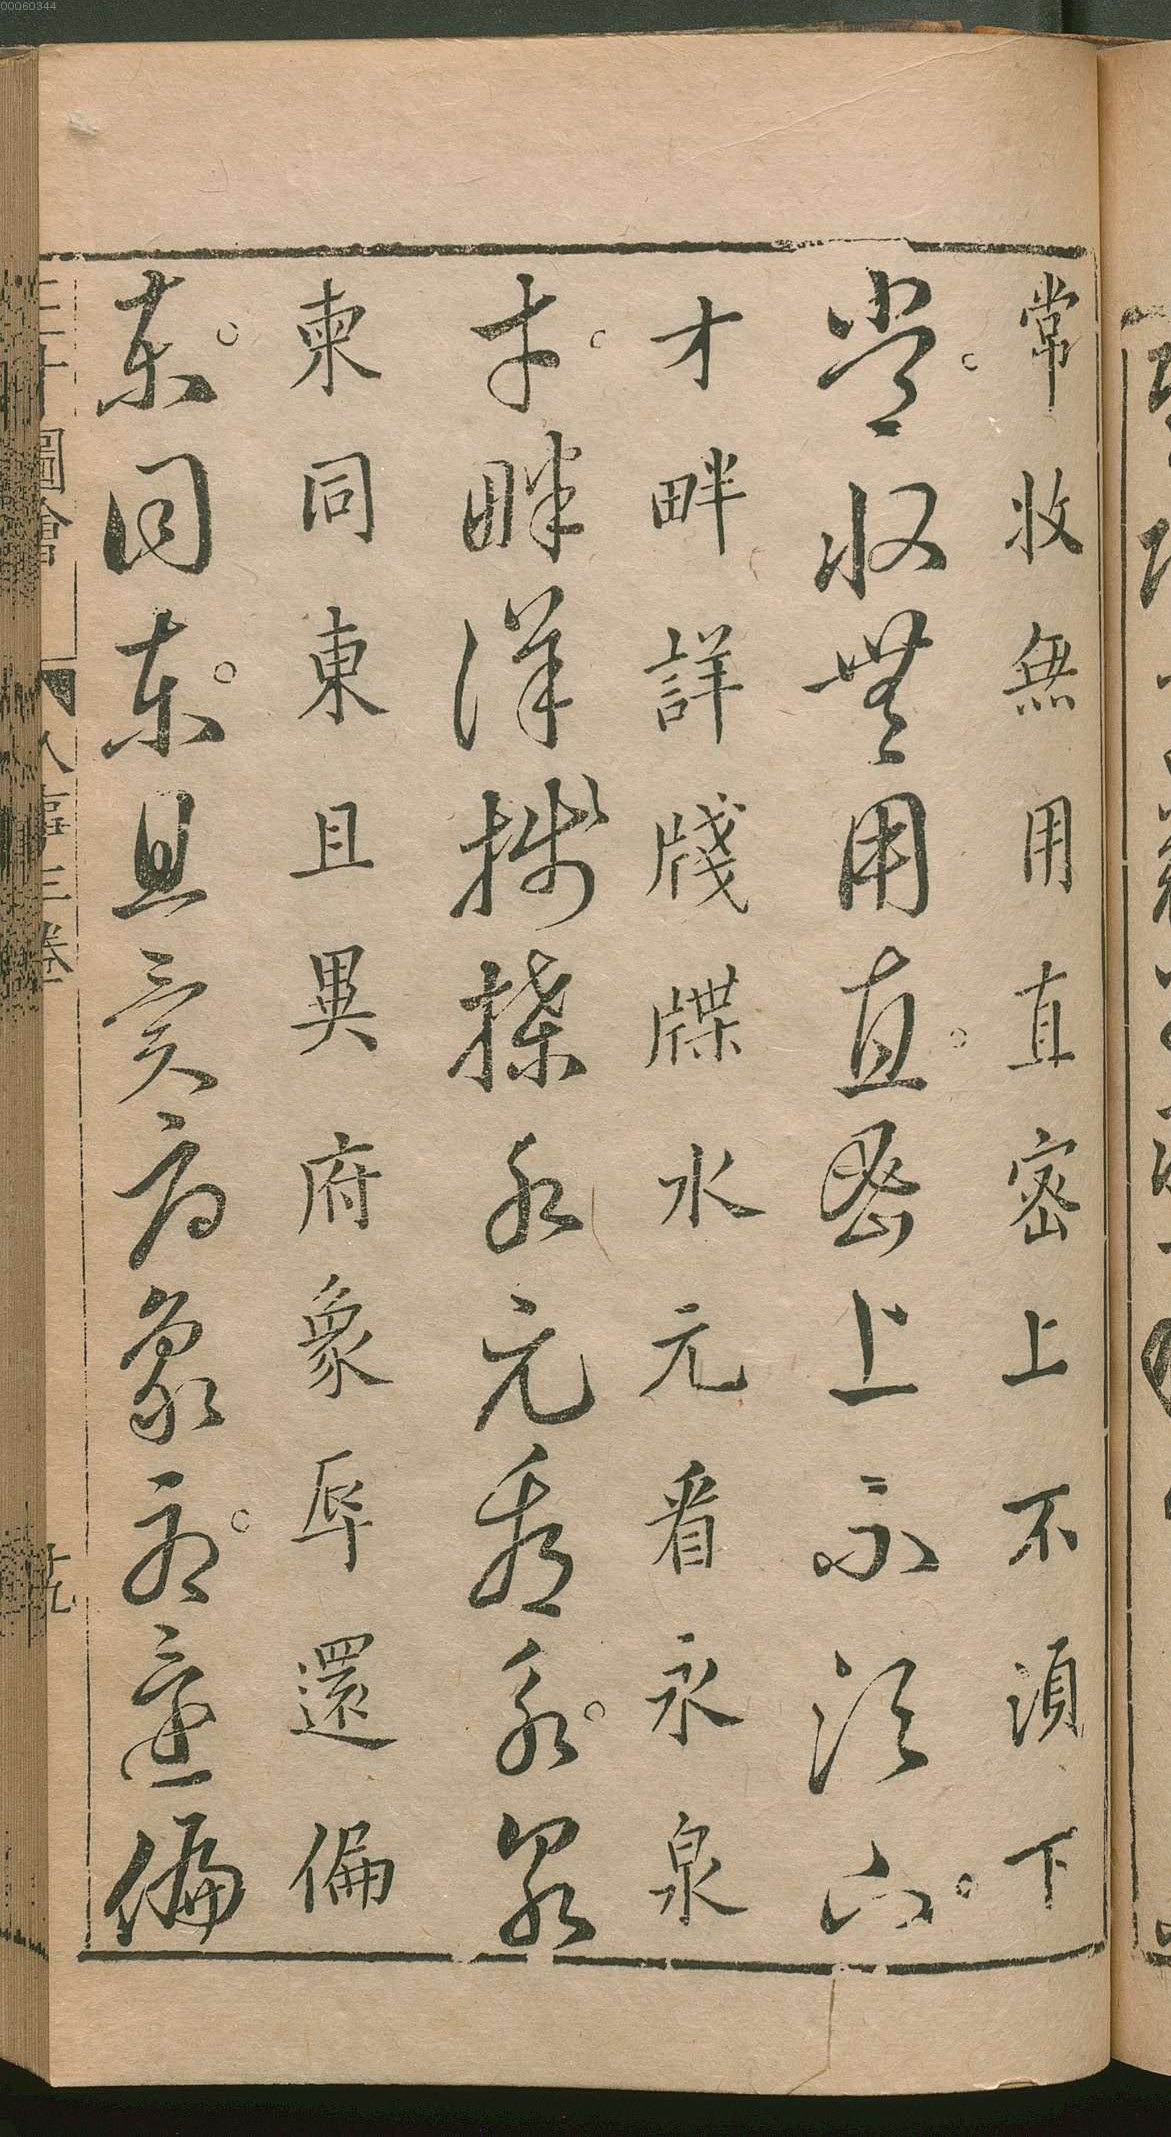 常收無用直密上不湏下
常收無用直密上不須下
才畔詳牋牒水元看永泉
才畔詳牋牒水元看永泉
柬同東且異府象厚還偏
柬同東且異府象厚還偏
三才圖會
人事三卷
廿九
00060344